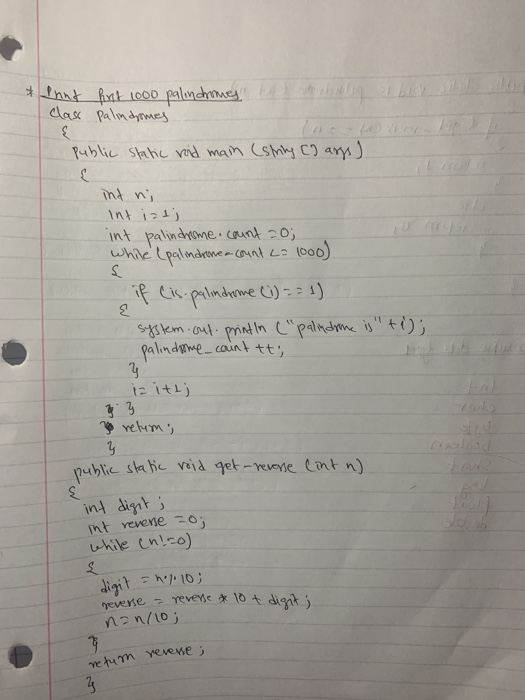 * Print first 1000 palindromes
class Palindromes
{
public static void main (string [] args)
{
int n;
int i=1;
int palindrome_count =0;
while (palindrome_count <= 1000)
{
if (is_palindrome(i)==1)
{
system.out.println ("palindrome is"+i);
palindrome_count ++;
}
i=i+1;
}
return;
}
public static void get-reverse (int n)
{
int digit;
int reverse =0;
while (n!=0)
{
digit = n%10;
reverse = reverse * 10 + digit;
n=n/10;
}
return reverse;
}